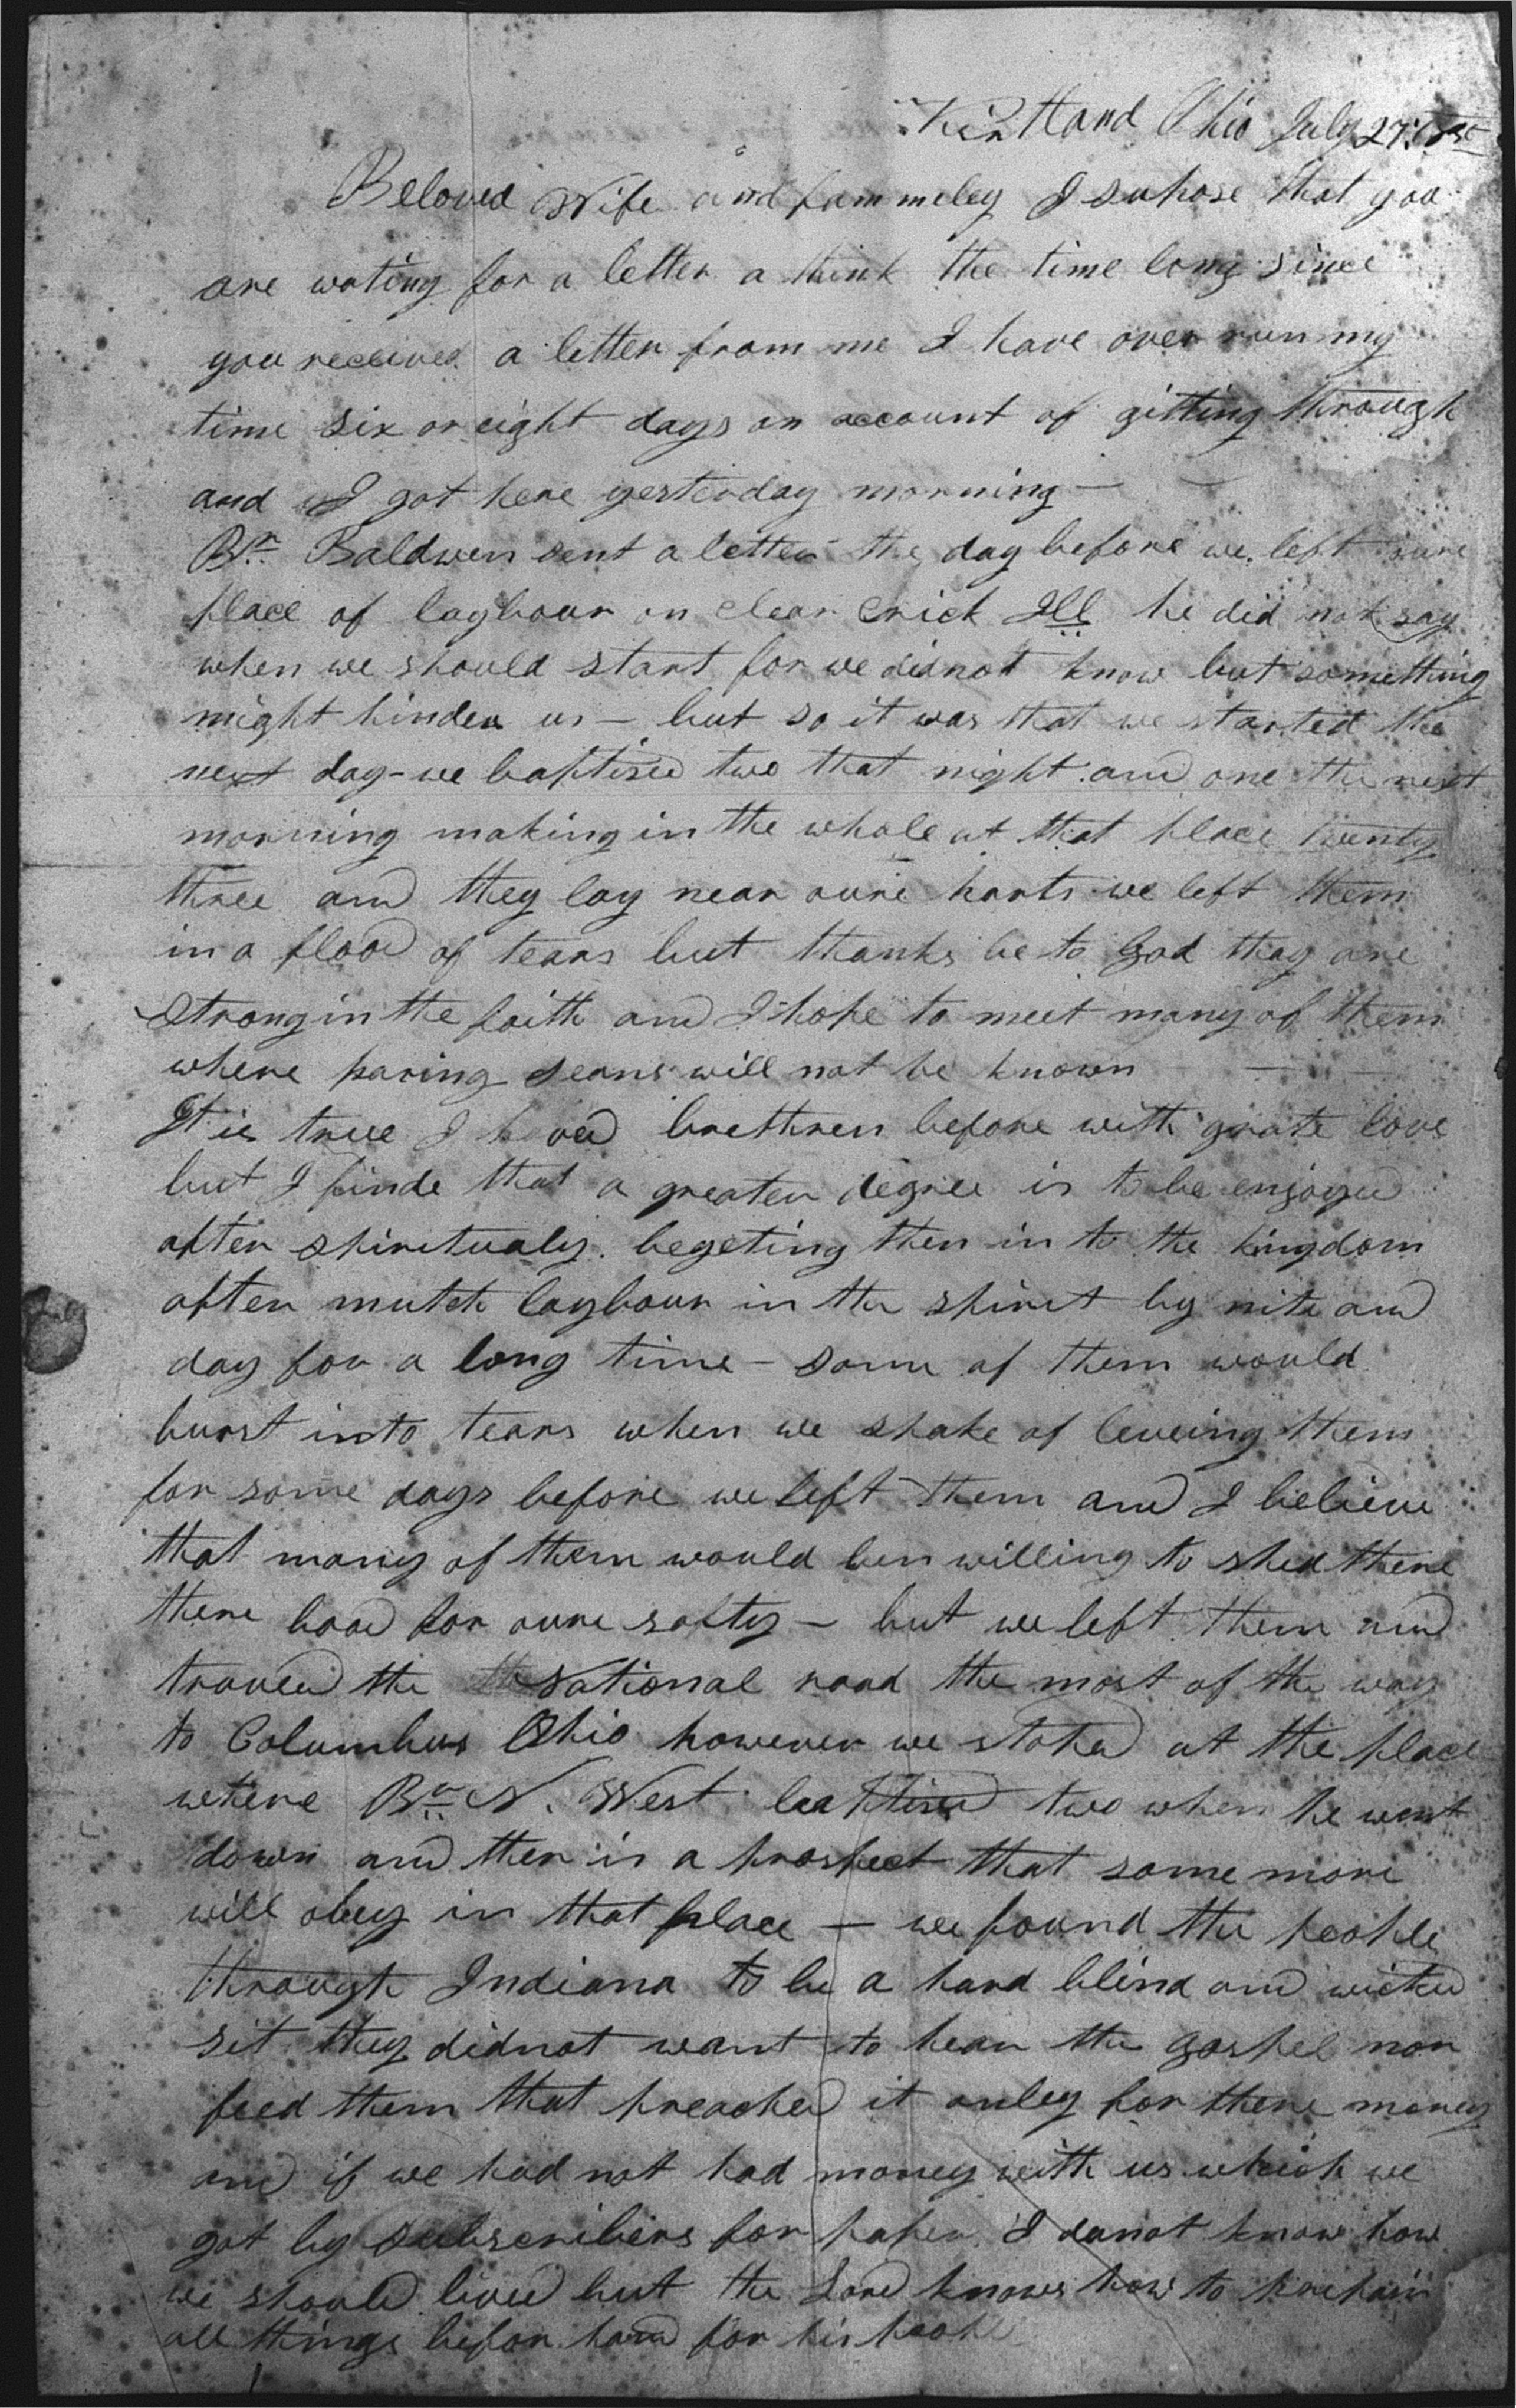 Kirtland Ohio July 27
Beloved Wife and fammeley I supose that you
are wating for a letter a think the time long since
you received a letter from me I have over run my
time six or eight days on account of gitting through
and I got here yesterday morning —
Br. Baldwen sent a letter the day before we left oure
place of laybour on clear Crick Ill he did not say
when we should start for we didnot know but something
might hinder us — but so it was that we started the
next day - we baptised two that night and one the next
morning making in the whole at that place twenty
three and they lay near oure harts we left them
in a flood of tears but thanks be to God thay are
Strong in the faith and I hope to meet many of them
where paring seans will not be known
It is true I loved brethren before with grate love
but I finde that a greater degree is to be enjoyed
after spiritualy begeting then in to the kingdom
after mutch laybour in the spirit by nite and
day for a long time - some of them would
burst into tears when we spake of leveing them
for some days before we left them and I believe
that many of them would ben willing to shed there
there blood for oure safty — but we left them and
traveled the National road the most of the way
to Columbus Ohio however we stoped at the place
where Br. N. West baptised two when he went
down and ther is a prospect that some more
will obey in that place — we found the people
through Indiana to be a hard blind and wicked
sit they didnot want to hear the gospel nor
feed them that preached it onley for there money
and if we had not had money with us which we
got by subscribers for paper I donot know how
we should lived but the Lord knows how to prepair
all things befor hand for his people